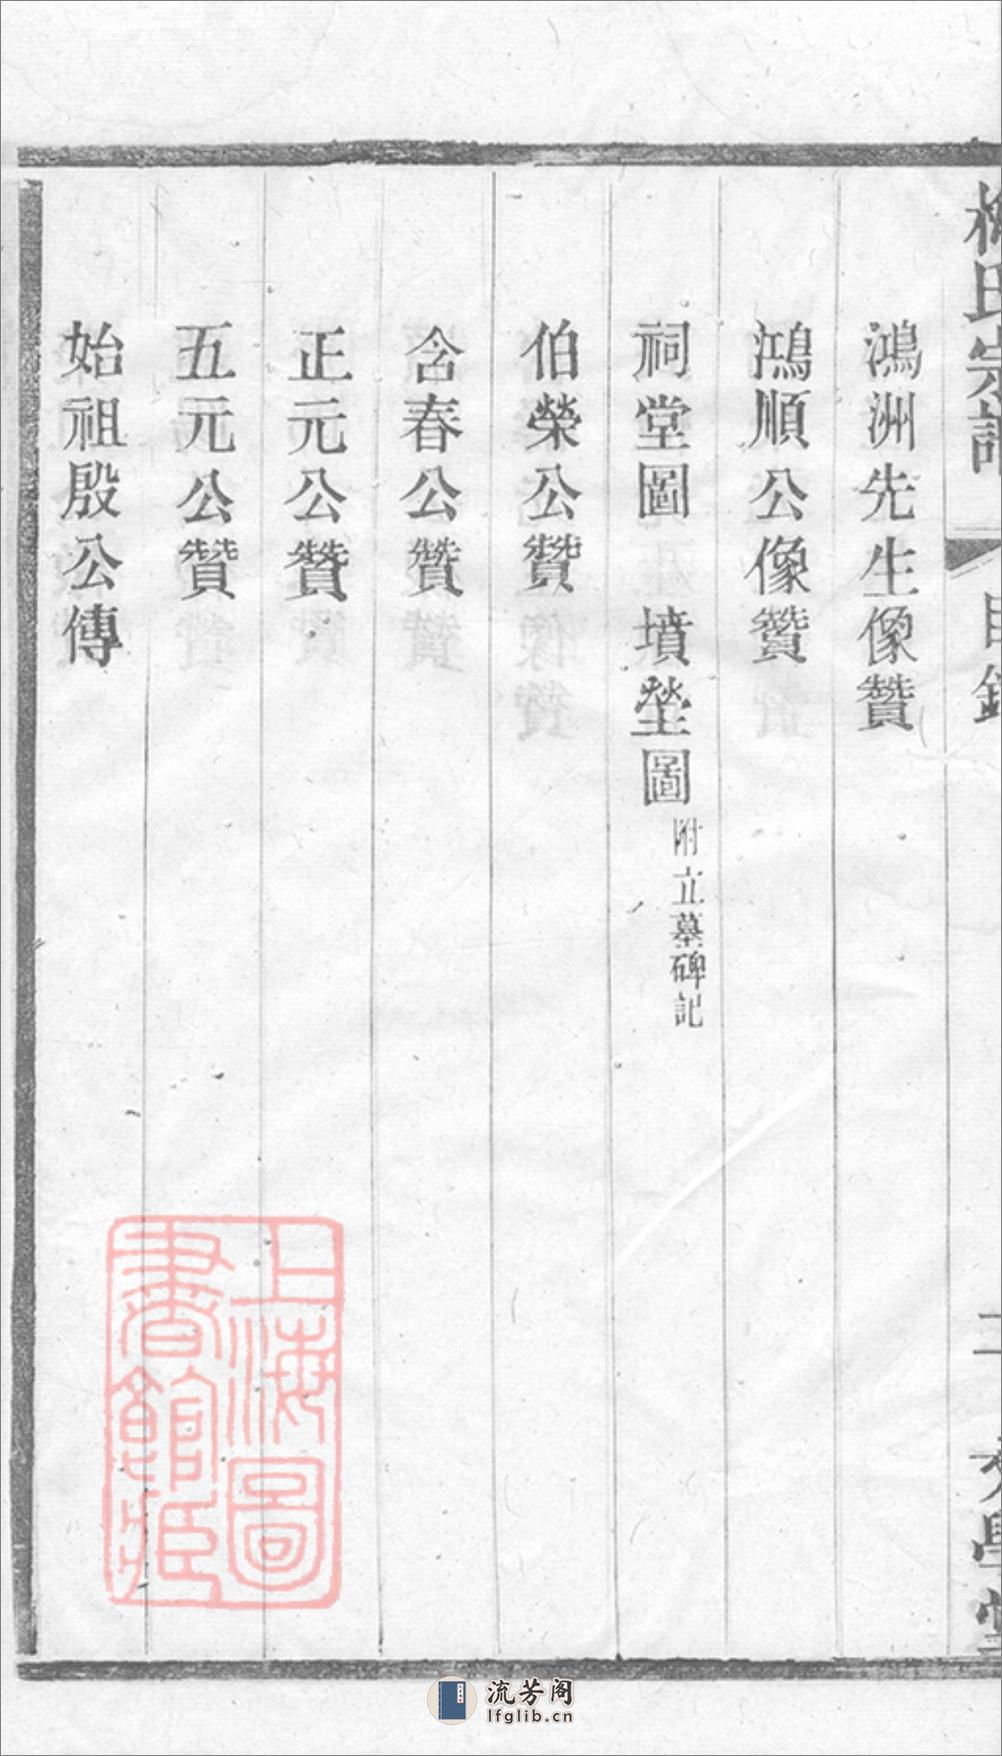 氏宗譜
目錄
二
學堂
鴻洲先生像贊
鴻順公像贊
祠堂圖 墳塋圖 附立墓碑記
伯榮公贊
含春公贊
正元公贊
五元公贊
始祖殷公傳
上海圖書館藏
流芳阁
lfglib.cn